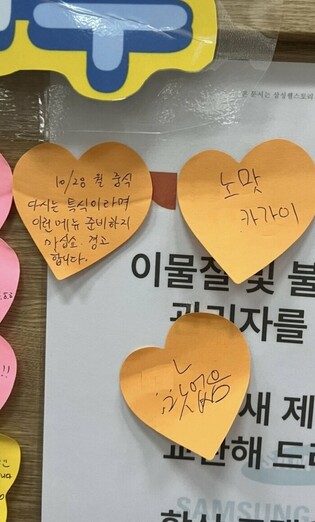 10/28 월 중식
다시는 특식이라며
이런메뉴 준비하지
마십쇼 경고
합니다.
노맛
카가이
이물질 및 불
관리자를
맛없음
새 제
교환해 드
SAMSUNG